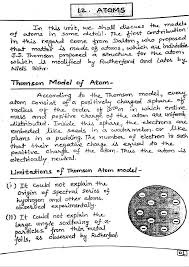 12. ATOMS
In this unit, we shall discuss the models
of atoms in some detail. The first contribution
in this regard came from Dalton, who proposed
that matter is made of atoms, which are indivisible
J.J. Thomson proposed a structure for the atoms
which is modified by Rutherford and later by
Niels Bohr
Thomson Model of Atom-
According to the Thomson model, every
atom consist of a positively charged sphere of
radius of the order of in which entire
mass and positive charge of the atom are uniformly
distributed. Inside this sphere, the electrons are
embedded like seeds in a watermelon or like
plums in a pudding. The number of electron is such
that their negative charge is equal to the
positive charge of the atom. Thus the atom is
electrically neutral.
Limitations of Thomson Atom model-
(i) It could not explain the
origin of spectral series of
hydrogen and other atoms
observed experimentally.
(ii) It could not explain the
large angle scattering of α-
particles from thin metal
foils, as observed by Rutherford